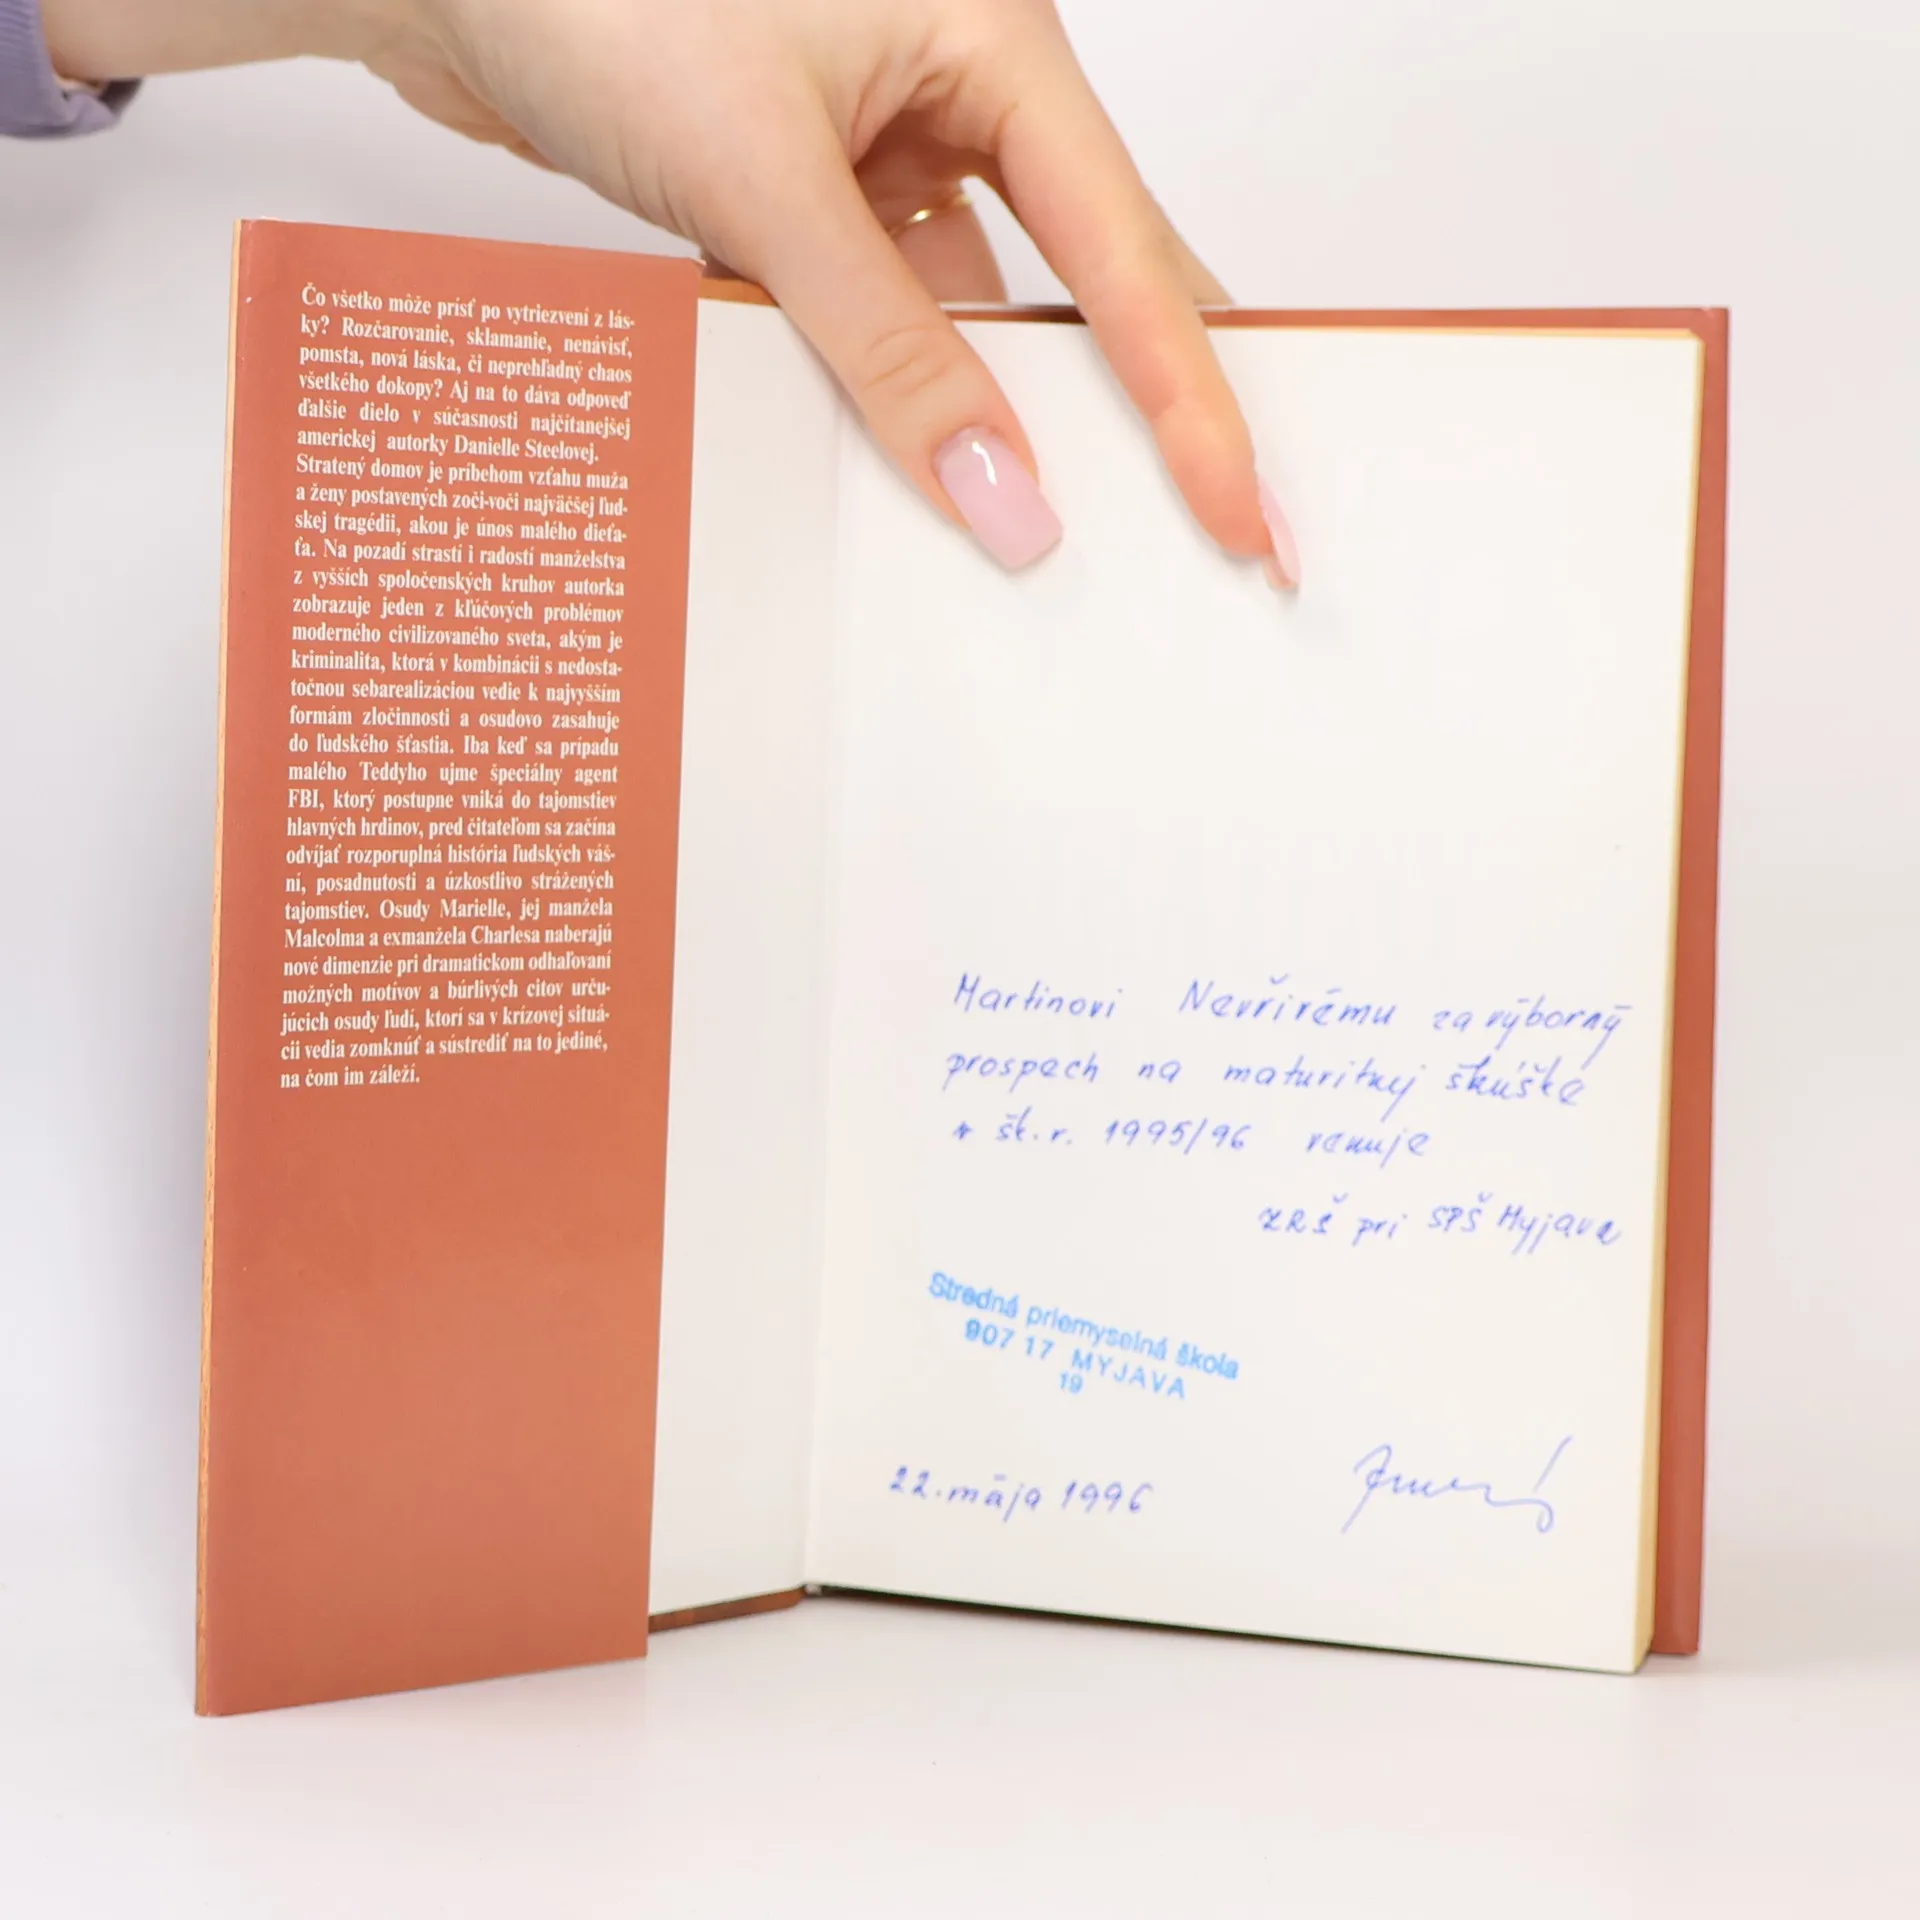 Čo všetko môže prísť po vytriezvení z lás-
ky? Rozčarovanie, sklamanie, nenávisť,
pomsta, nová láska, či neprehľadný chaos
všetkého dokopy? Aj na to dáva odpoveď
ďalšie dielo v súčasnosti najčítanejšej
americkej autorky Danielle Steelovej.
Stratený domov je príbehom vzťahu muža
a ženy postavených zoči-voči najväčšej ľud-
skej tragédii, akou je únos malého dieťa-
ťa. Na pozadí strastí i radostí manželstva
z vyšších spoločenských kruhov autorka
zobrazuje jeden z kľúčových problémov
moderného civilizovaného sveta, akým je
kriminalita, ktorá v kombinácii s nedosta-
točnou sebarealizáciou vedie k najvyšším
formám zločinnosti a osudovo zasahuje
do ľudského šťastia. Iba keď sa prípadu
malého Teddyho ujme špeciálny agent
FBI, ktorý postupne vniká do tajomstiev
hlavných hrdinov, pred čitateľom sa začína
odvíjať rozporuplná história ľudských váš-
ní, posadnutosti a úzkostlivo strážených
tajomstiev. Osudy Marielle, jej manžela
Malcolma a exmanžela Charlesa naberajú
nové dimenzie pri dramatickom odhaľovaní
možných motívov a búrlivých citov urču-
júcich osudy ľudí, ktorí sa v krízovej situá-
cii vedia zomknúť a sústrediť na to jediné,
na čom im záleží.
Martinovi Nevřirému za výborný
prospech na maturitnej skúške
v šk.r. 1995/96 venuje
ZRŠ pri SPŠ Myjava
Stredná priemyselná škola
907 17 MYJAVA
19
22. mája 1996